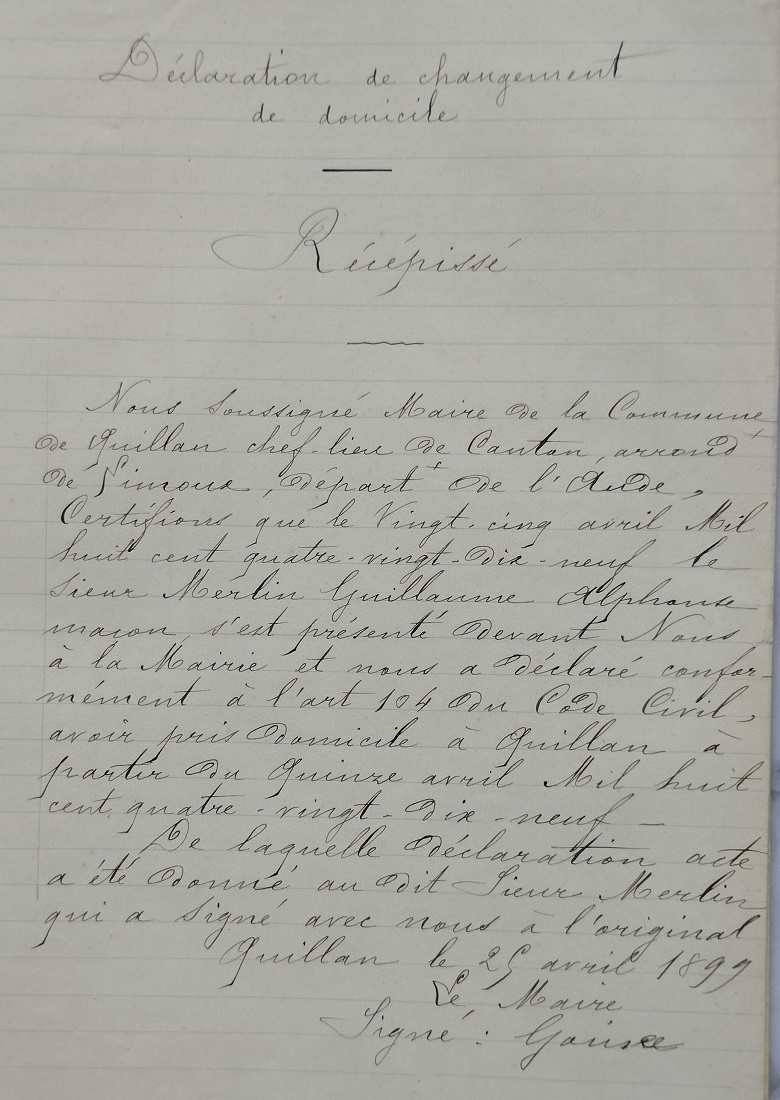 Déclaration de changement
de domicile
Récépissé
Nous soussigné Maire de la Commune
de Quillan chef-lieu de Canton, arrond.
de Limoux, départ.t de l'Aude,
Certifions que le Vingt-cinq avril Mil
huit cent quatre-vingt-dix-neuf le
Sieur Merlin Guillaume Alphonse
maçon, s'est présenté devant Nous
à la Mairie et nous a déclaré confor-
mément à l'art 104 du Code Civil,
avoir pris domicile à Quillan à
partir du Quinze avril Mil huit
cent quatre-vingt-dix-neuf —
De laquelle déclaration acte
a été donné au dit Sieur Merlin
qui a signé avec nous à l'original
Quillan le 25 avril 1899
Le Maire
Signé :